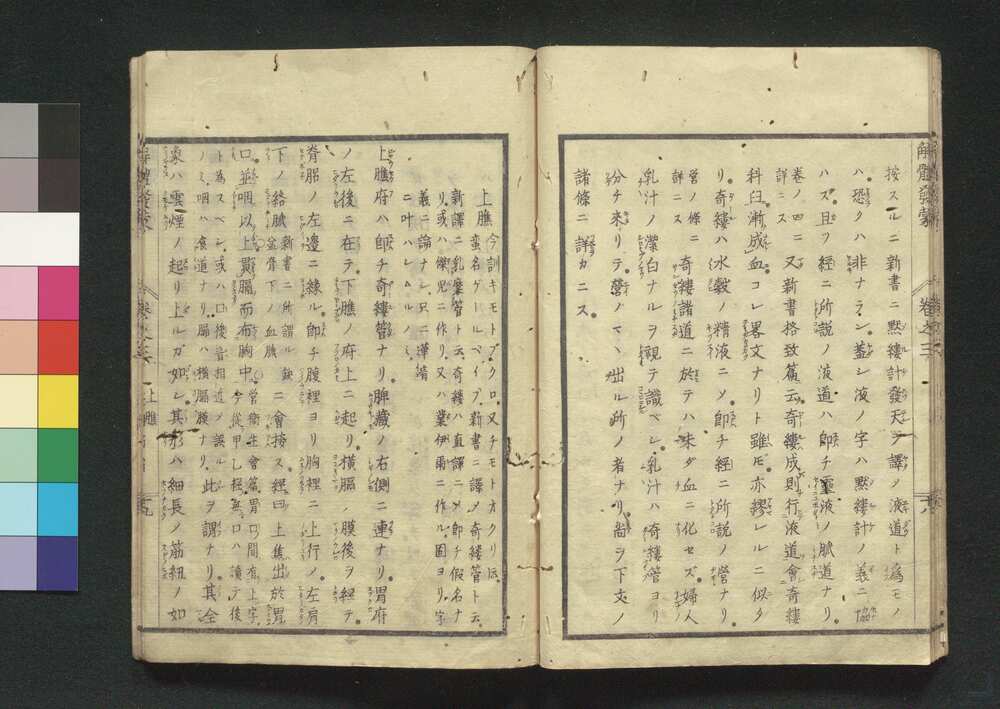 解體發蒙
卷之三
按スルニ新書ニ黙縷計發天ヲ譯ノ液道ト爲モノ
ハ恐クハ非ナラン蓋シ液ノ字ハ黙縷計ノ義ニ協
ハズ且ツ経ニ所説ノ液道ハ即チ靈液ノ賦道ナリ
巻ノ四ニ詳ニス又新書格致篇云奇縷成則行液道會奇縷
科臼漸成血コレ畧文ナリト雖モ亦繆レルニ似タ
リ奇縷ハ水穀ノ精液ニメ即チ経ニ所説ノ營ナリ
營ノ條ニ詳ニス奇縷諸道ニ於テハ未ダ血ニ化セズ婦人
乳汁ノ潔白ナルヲ觀テ識ベシ乳汁ハ奇縷管ヨリ
分チ來リテ營ノマヽ出ル所ノ者ナリ尚ヲ下文ノ
諸條ニ詳カニス
上瞧
今訓キモトブクロ又チモトオクリ伝
蛮名ゲールペイプ新書ニ譯メ奇縷管ト云
新譯ニ乳糜管ト云奇縷ハ直譯ニメ即チ假名ナ
リ或ハ傑児ニ作リ又ハ業伊爾ニ作ル固ヨリ字
義ニ論ナシ只ニ準縮
ニ叶ハシムルノミ
上瞧府ハ即チ奇縷管ナリ脾藏ノ右側ニ連ナリ胃府
ノ左後ニ在テ下瞧ノ府上ニ起リ横膈ノ膜後ヲ経テ
脊䏚ノ左邊ニ線ル即チ腹裡ヨリ胸裡ニ上行ノ左肩
下ノ絡賦新書ニ所謂ル缺盆骨下ノ血脈ニ會接ス経曰上焦出於胃
口並咽以上貫膈而布胸中營衛生會篇胃口間有上字今従甲乙経無口ハ讀テ後
ト為スベシ或ハ口後音相近ノ誤ルノミ
咽ハ食道ナリ膈ハ横膈膜ナリ此ヲ謂ナリ其全
象ハ雲煙ノ起リ上ルガ如シ其形ハ細長ノ筋紐ノ如
上瞧